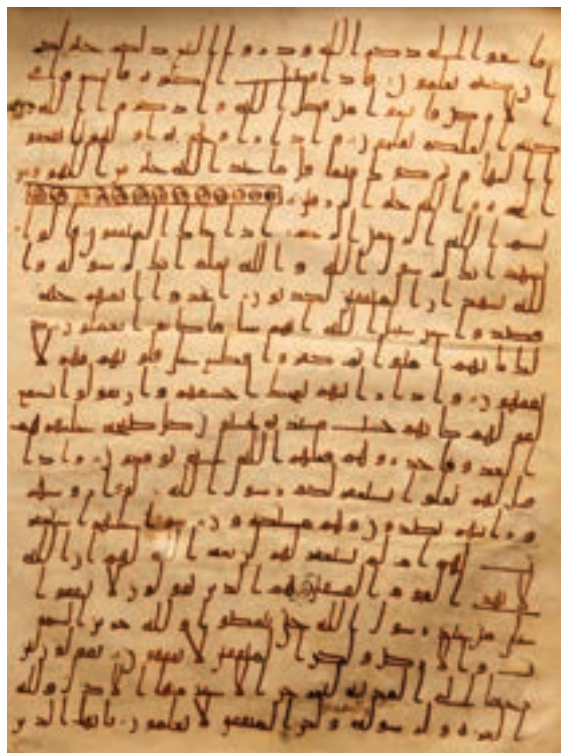 فاسعوا الى ذكر الله وذروا البيع ذلكم خير لكم
ان كنتم تعلمون فاذا قضيت الصلوه فانتشروا
في الارض وابتغوا من فضل الله واذكروا الله
كثيرا لعلكم تفلحون واذا راوا تجره او لهوا انفضوا
اليها وتركوك قائما قل ما عند الله خير من اللهو ومن
التجره والله خير الرزقين
بسم الله الرحمن الرحيم اذا جاك المنفقون قالوا
نشهد انك لرسول الله والله يعلم انك لرسوله وا
لله يشهد ان المنفقين لكذبون اتخذوا ايمنهم جنه
فصدوا عن سبيل الله انهم سا ما كانوا يعملون ذ
لك بانهم امنوا ثم كفروا فطبع على قلوبهم فهم لا
يفقهون واذا رايتهم تعجبك اجسمهم وان يقولوا تسمع
لقولهم كانهم خشب مسنده يحسبون كل صيحه عليهم هم
العدو فاحذرهم قتلهم الله انى يوفكون واذا
قيل لهم تعالوا يستغفر لكم رسول الله لووا روسهم
ورايتهم يصدون وهم مستكبرون سوا عليهم استغفر
ت لهم ام لم تستغفر لهم لن يغفر الله لهم ان الله
لا يهدي القوم الفسقين هم الذين يقولون لا تنفقوا
على من عند رسول الله حتى ينفضوا ولله خزين السمو
ت والارض ولكن المنفقين لا يفقهون يقولون لين
رجعنا الى المدينه ليخرجن الاعز منها الاذل ولله
العزه ولرسوله ولكن المنفقين لا يعلمون يايها الذين